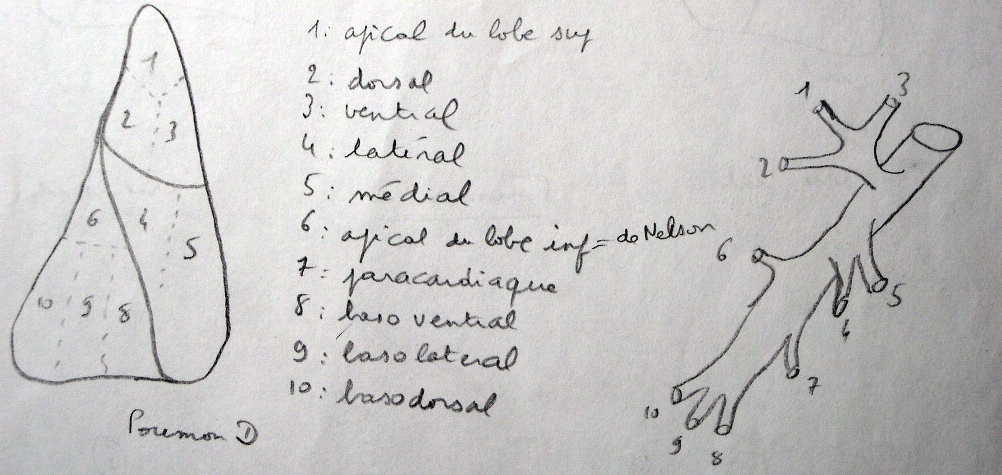 1
2
3
6
4
5
10
9
8
Poumon D
1: apical du lobe sup
2: dorsal
3: ventral
4: latéral
5: médial
6: apical du lobe inf = de Nelson
7: paracardiaque
8: baso ventral
9: baso lateral
10: basodorsal
1
3
2
6
5
4
7
10
9
8